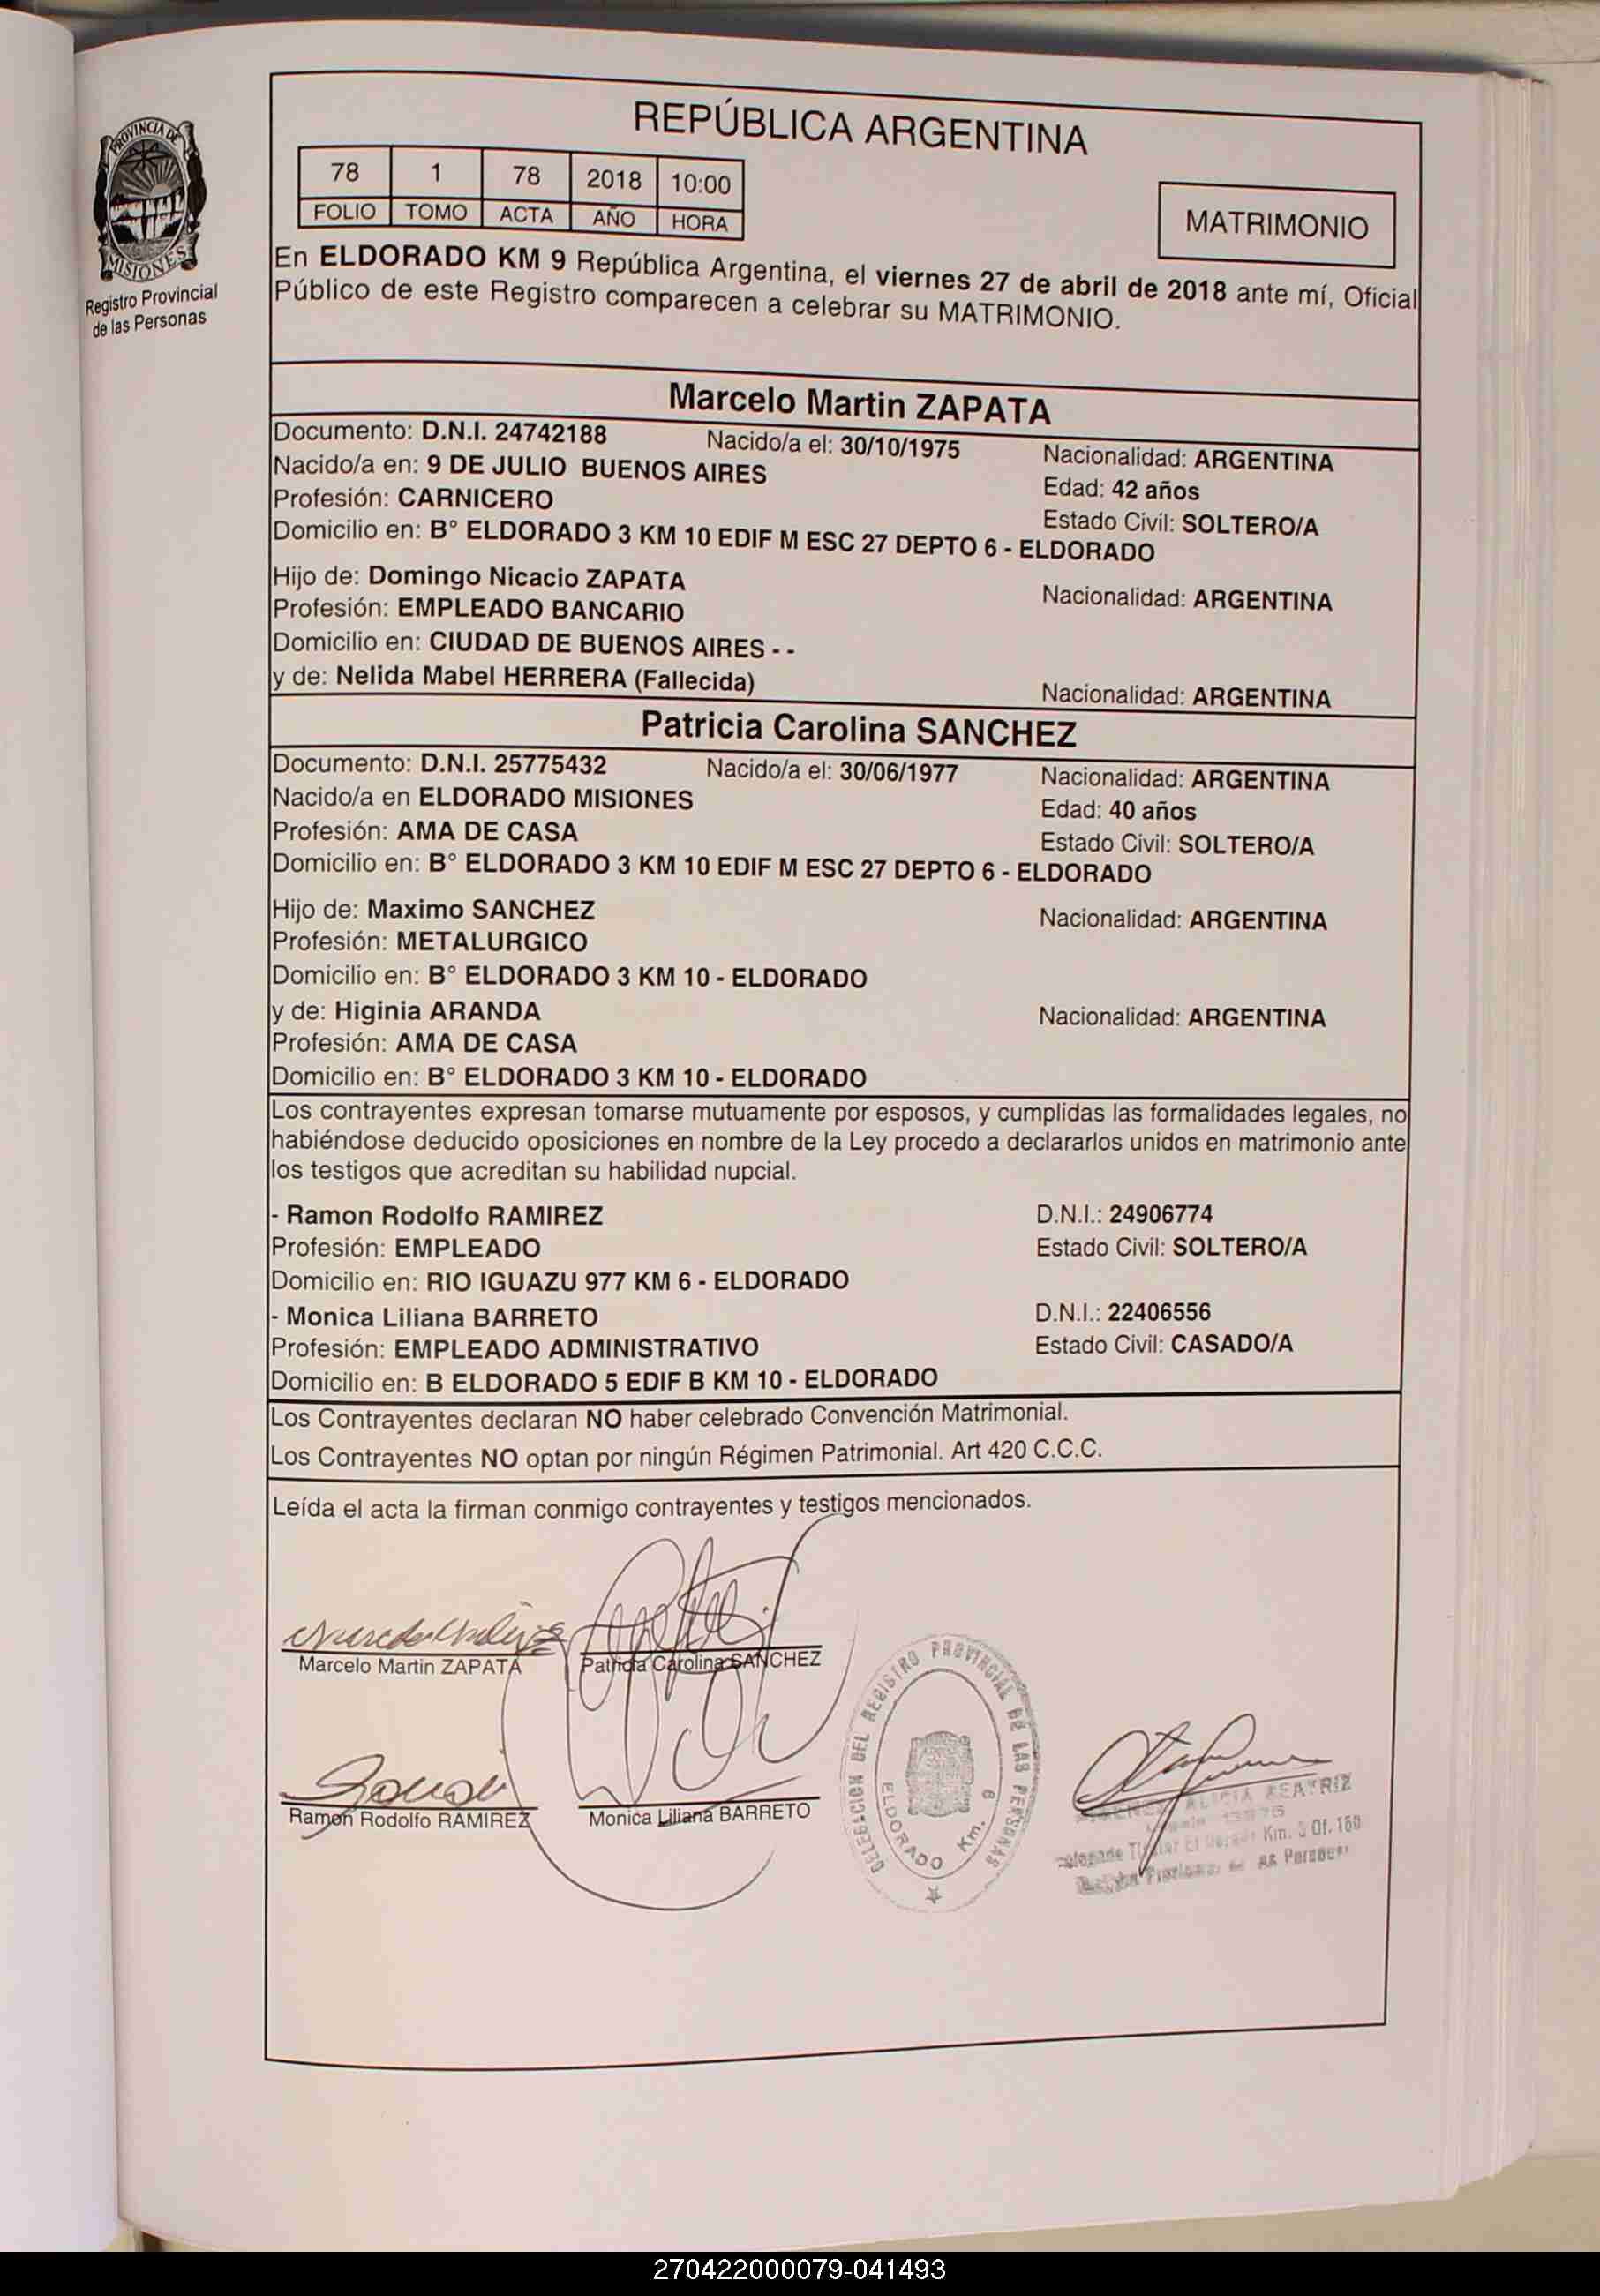 PROVINCIA DE
MISIONES
Registro Provincial
de las Personas
REPÚBLICA ARGENTINA
78 1 78 2018 10:00
FOLIO TOMO ACTA AÑO HORA
MATRIMONIO
En ELDORADO KM 9 República Argentina, el viernes 27 de abril de 2018 ante mí, Oficial
Público de este Registro comparecen a celebrar su MATRIMONIO.
Marcelo Martin ZAPATA
Documento: D.N.I. 24742188 Nacido/a el: 30/10/1975 Nacionalidad: ARGENTINA
Nacido/a en: 9 DE JULIO BUENOS AIRES Edad: 42 años
Profesión: CARNICERO Estado Civil: SOLTERO/A
Domicilio en: B° ELDORADO 3 KM 10 EDIF M ESC 27 DEPTO 6 - ELDORADO
Hijo de: Domingo Nicacio ZAPATA Nacionalidad: ARGENTINA
Profesión: EMPLEADO BANCARIO
Domicilio en: CIUDAD DE BUENOS AIRES - -
y de: Nelida Mabel HERRERA (Fallecida) Nacionalidad: ARGENTINA
Patricia Carolina SANCHEZ
Documento: D.N.I. 25775432 Nacido/a el: 30/06/1977 Nacionalidad: ARGENTINA
Nacido/a en ELDORADO MISIONES Edad: 40 años
Profesión: AMA DE CASA Estado Civil: SOLTERO/A
Domicilio en: B° ELDORADO 3 KM 10 EDIF M ESC 27 DEPTO 6 - ELDORADO
Hijo de: Maximo SANCHEZ Nacionalidad: ARGENTINA
Profesión: METALURGICO
Domicilio en: B° ELDORADO 3 KM 10 - ELDORADO
y de: Higinia ARANDA Nacionalidad: ARGENTINA
Profesión: AMA DE CASA
Domicilio en: B° ELDORADO 3 KM 10 - ELDORADO
Los contrayentes expresan tomarse mutuamente por esposos, y cumplidas las formalidades legales, no
habiéndose deducido oposiciones en nombre de la Ley procedo a declararlos unidos en matrimonio ante
los testigos que acreditan su habilidad nupcial.
- Ramon Rodolfo RAMIREZ D.N.I.: 24906774
Profesión: EMPLEADO Estado Civil: SOLTERO/A
Domicilio en: RIO IGUAZU 977 KM 6 - ELDORADO
- Monica Liliana BARRETO D.N.I.: 22406556
Profesión: EMPLEADO ADMINISTRATIVO Estado Civil: CASADO/A
Domicilio en: B ELDORADO 5 EDIF B KM 10 - ELDORADO
Los Contrayentes declaran NO haber celebrado Convención Matrimonial.
Los Contrayentes NO optan por ningún Régimen Patrimonial. Art 420 C.C.C.
Leída el acta la firman conmigo contrayentes y testigos mencionados.
Marcelo Martin ZAPATA Patricia Carolina SANCHEZ
Ramon Rodolfo RAMIREZ Monica Liliana BARRETO
DELEGACION DEL REGISTRO PROVINCIAL DE LAS PERSONAS
ELDORADO Km. 9
ALICIA BEATRIZ
Km. 9 Of. 150
270422000079-041493